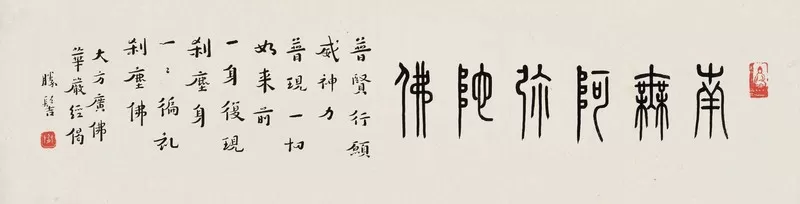 南無阿弥陀佛
普賢行願
威神力
普現一切
如来前
一身復現
刹塵身
一一徧礼
刹塵佛
大方廣佛
華嚴經偈
勝髻